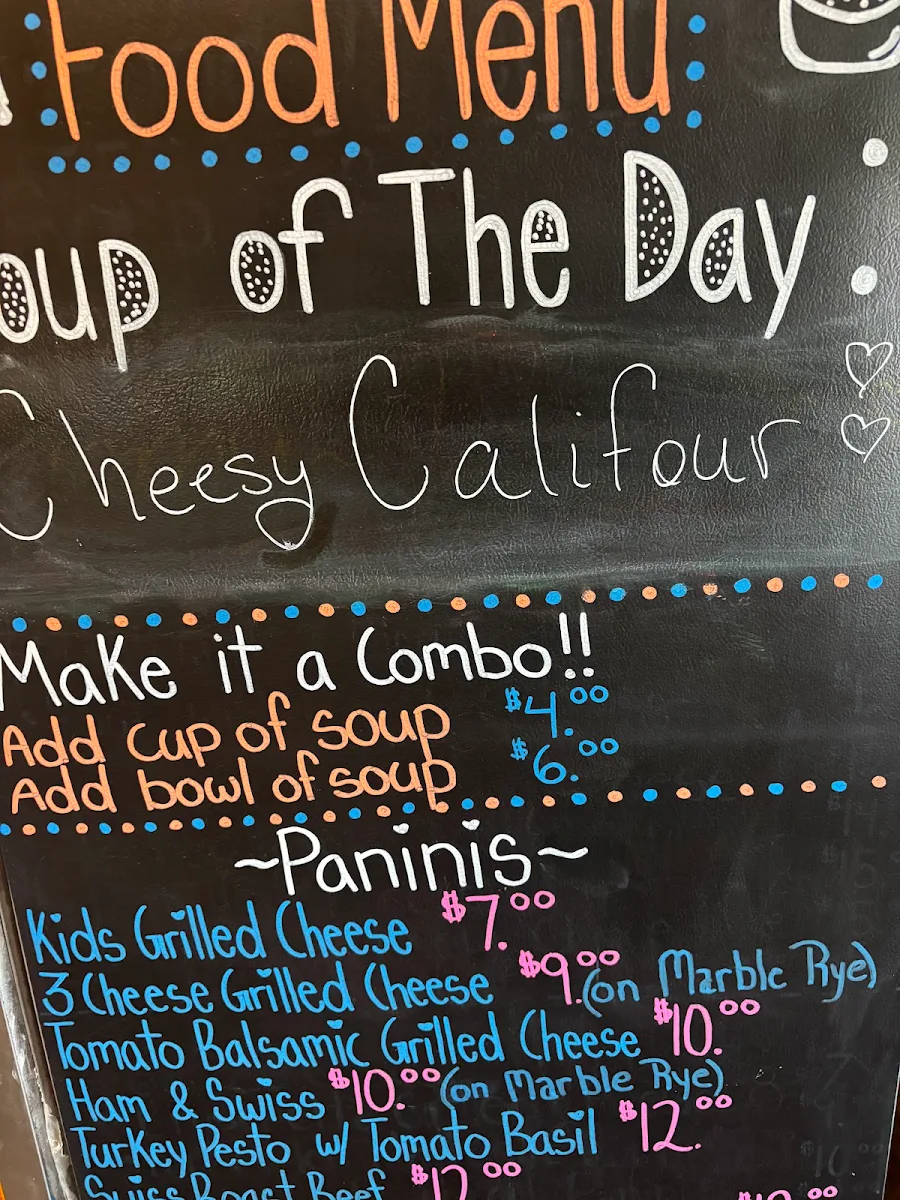 Food Menu
oup of The Day :
Cheesy Califour
Make it a Combo!!
Add cup of soup $4.00
Add bowl of soup $6.00
~Paninis~
Kids Grilled Cheese $7.00
3 Cheese Grilled Cheese $9.00 (on Marble Rye)
Tomato Balsamic Grilled Cheese $10.00
Ham & Swiss $10.00 (on Marble Rye)
Turkey Pesto w/ Tomato Basil $12.00
Swiss Roast Beef $12.00